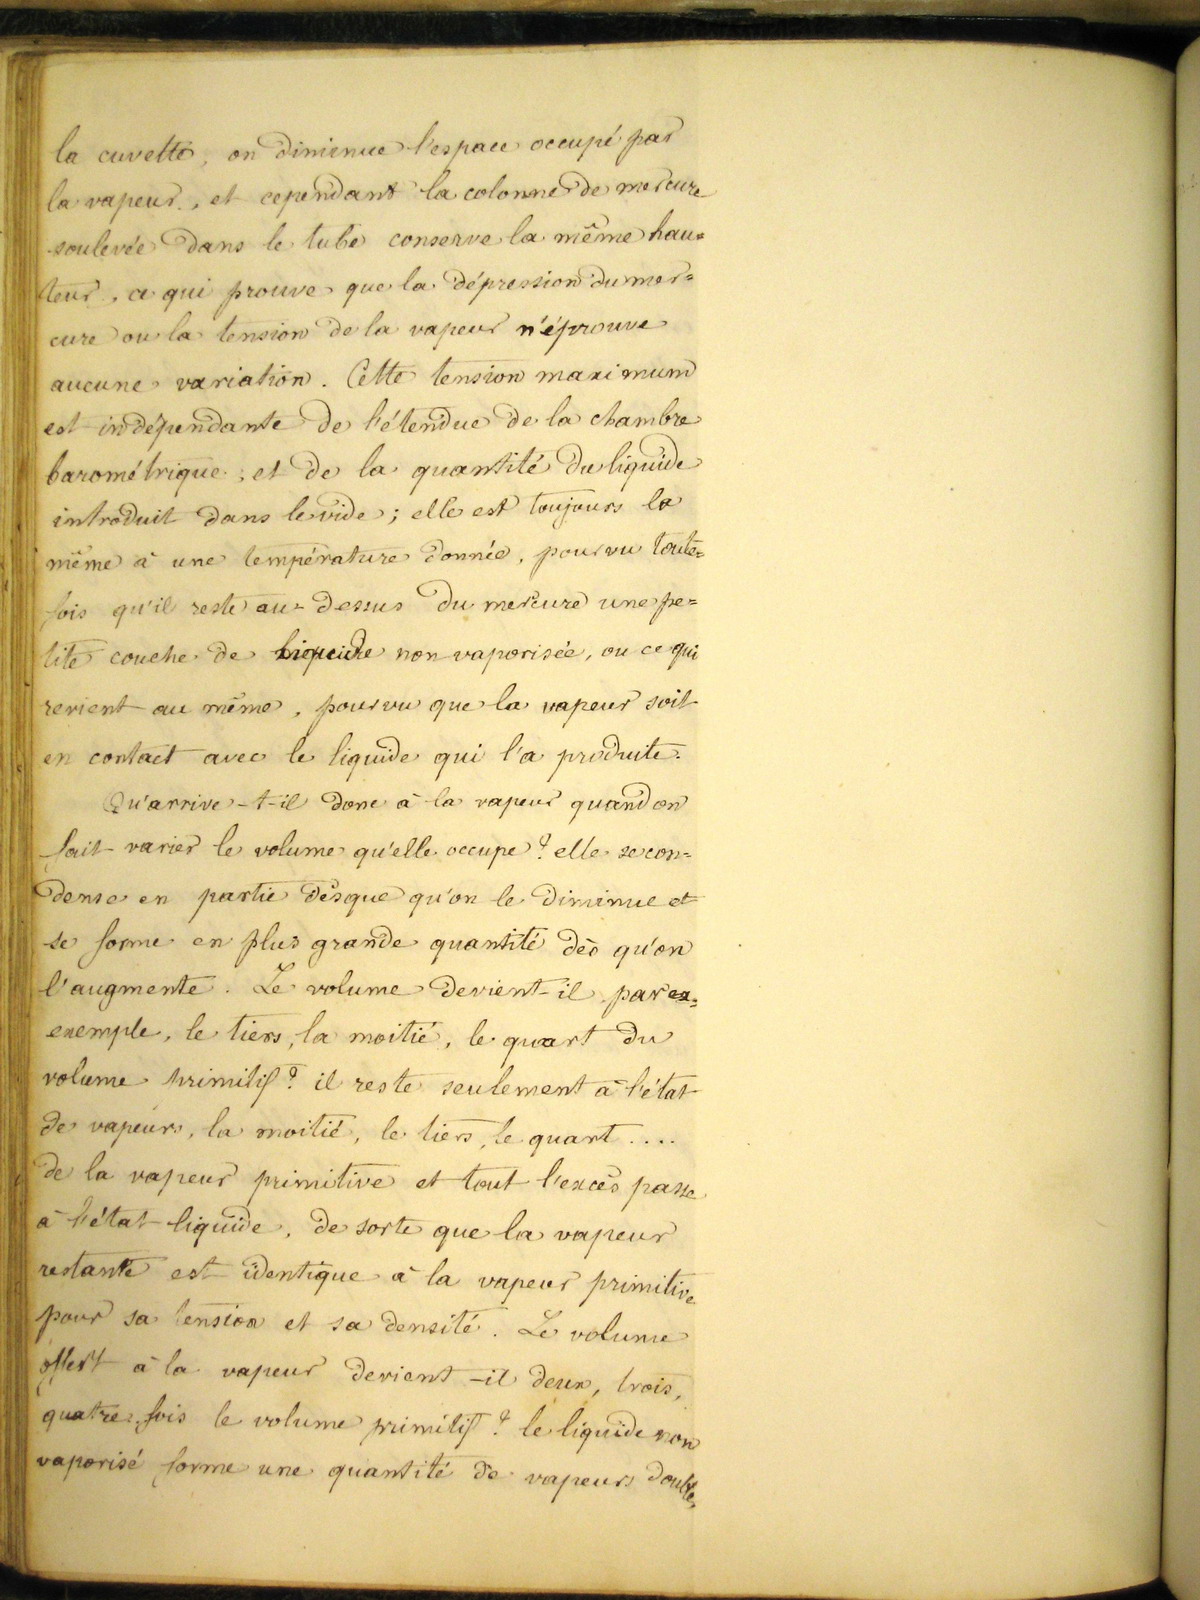 la cuvette, on diminue l'espace occupé par
la vapeur, et cependant la colonne de mercure
soulevée dans le tube conserve la même hau=
teur, ce qui prouve que la dépression du mer=
cure ou la tension de la vapeur n'éprouve
aucune variation. Cette tension maximum
est indépendante de l'étendue de la chambre
barométrique; et de la quantité du liquide
introduit dans le vide; elle est toujours la
même à une température donnée, pourvu toute=
fois qu'il reste au-dessus du mercure une pe=
tite couche de liquide non vaporisée, ou ce qui
revient au même, pourvu que la vapeur soit
en contact avec le liquide qui l'a produite.
Qu'arrive-t-il donc à la vapeur quand on
fait varier le volume qu'elle occupe? elle se con=
dense en partie dèsque qu'on le diminue et
se forme en plus grande quantité dès qu'on
l'augmente. Le volume devient-il par ex=
exemple, le tiers, la moitié, le quart du
volume primitif? il reste seulement à l'état
de vapeurs, la moitié, le tiers, le quart ....
de la vapeur primitive et tout l'excès passe
à l'état liquide, de sorte que la vapeur
restante est identique à la vapeur primitive
pour sa tension et sa densité. Le volume
offert à la vapeur devient-il deux, trois,
quatre, fois le volume primitif? le liquide non
vaporisé forme une quantité de vapeurs double,